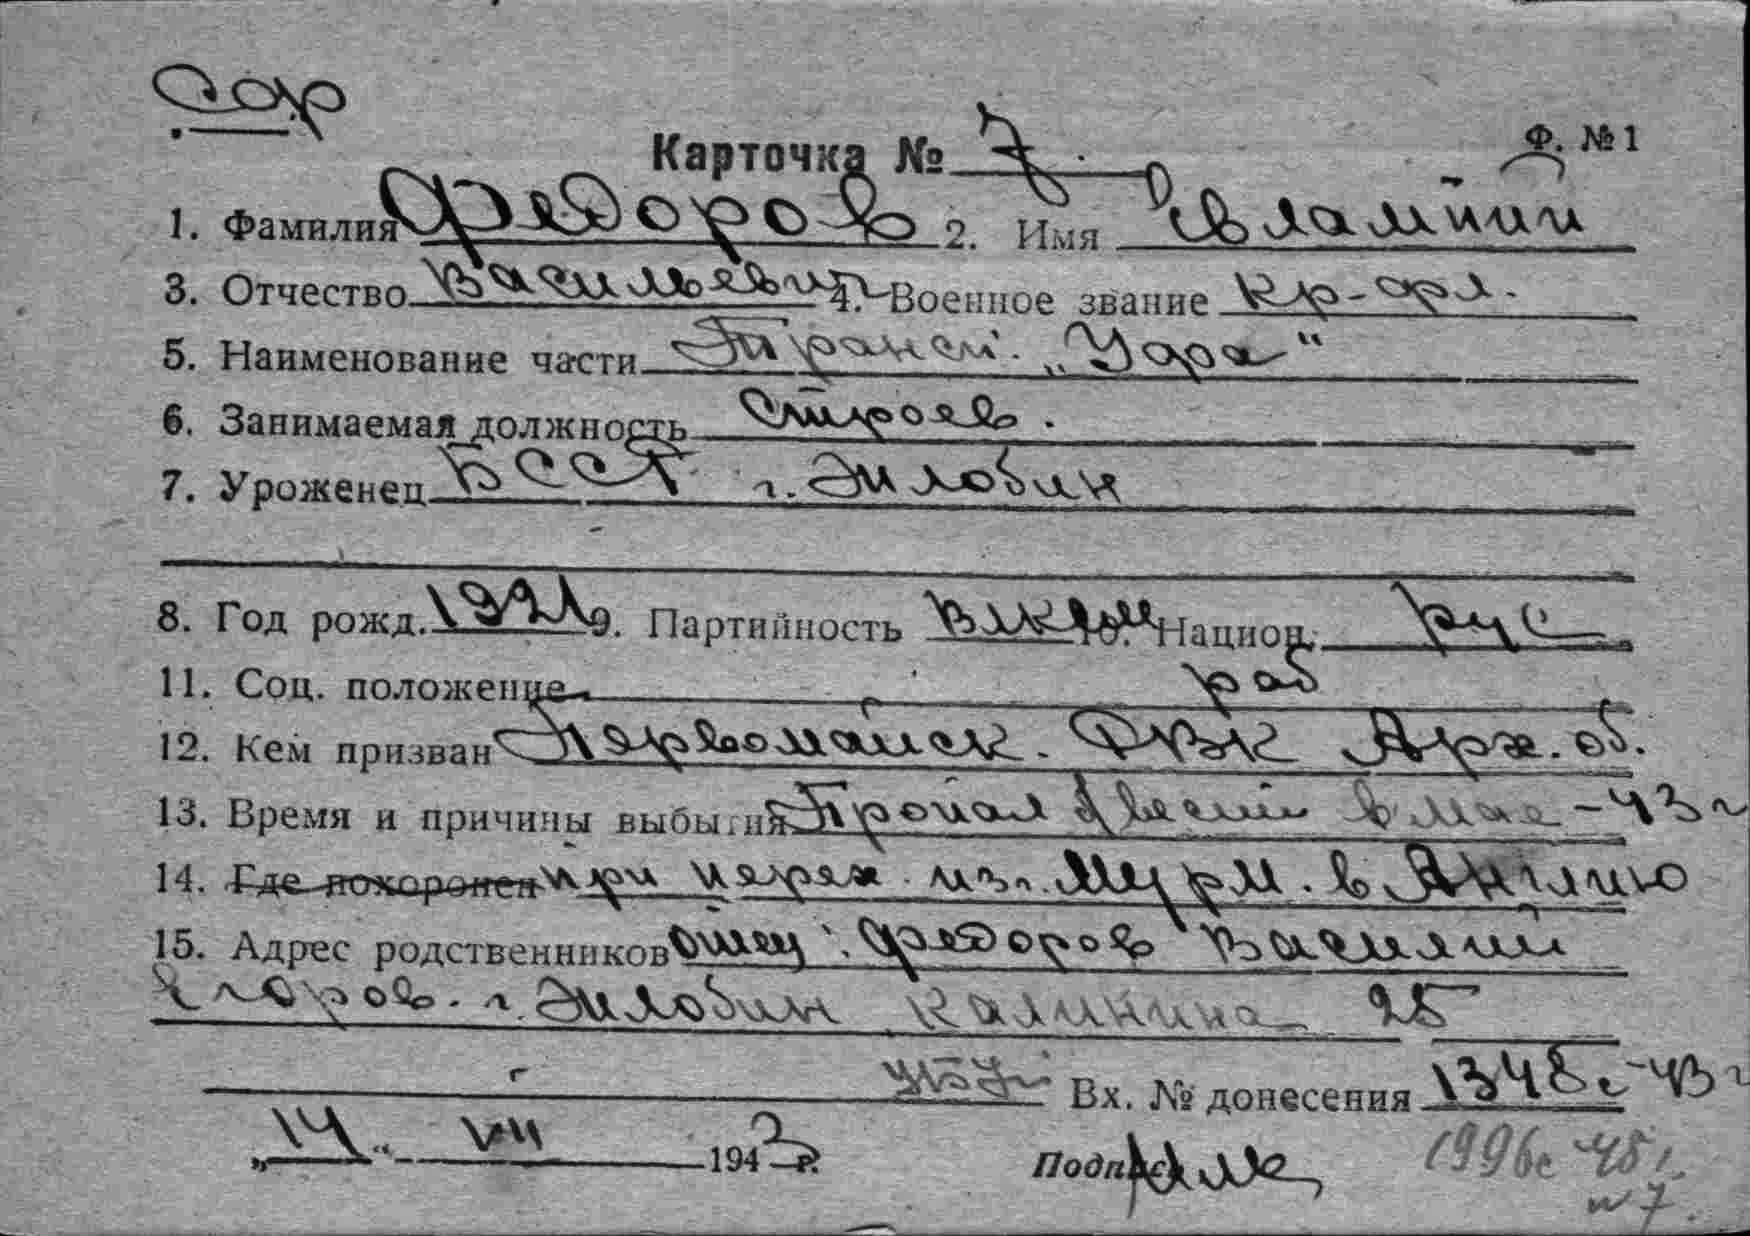 Карточка № 7
Ф. № 1
1. Фамилия Федоров 2. Имя Евлампий
3. Отчество Васильевич 4. Военное звание кр-арм.
5. Наименование части Трансп. „Урал“
6. Занимаемая должность Строев.
7. Уроженец БССР г. Жлобин
8. Год рожд. 1921 9. Партийность ВЛКСМ 10. Национ. рус
11. Соц. положение раб
12. Кем призван Первомайск. РВК Арх. об.
13. Время и причины выбытия Пропал б/вести в мае - 43 г
14. Где похоронен при перех. из г. Мурм. в Англию
15. Адрес родственников отец: Федоров Василий
Егоров. г. Жлобин Калинина 25
Вх. № донесения 1348с-43 г
„14“ VII 1943 г.
Подпись
1996с 45 г.
№ 7